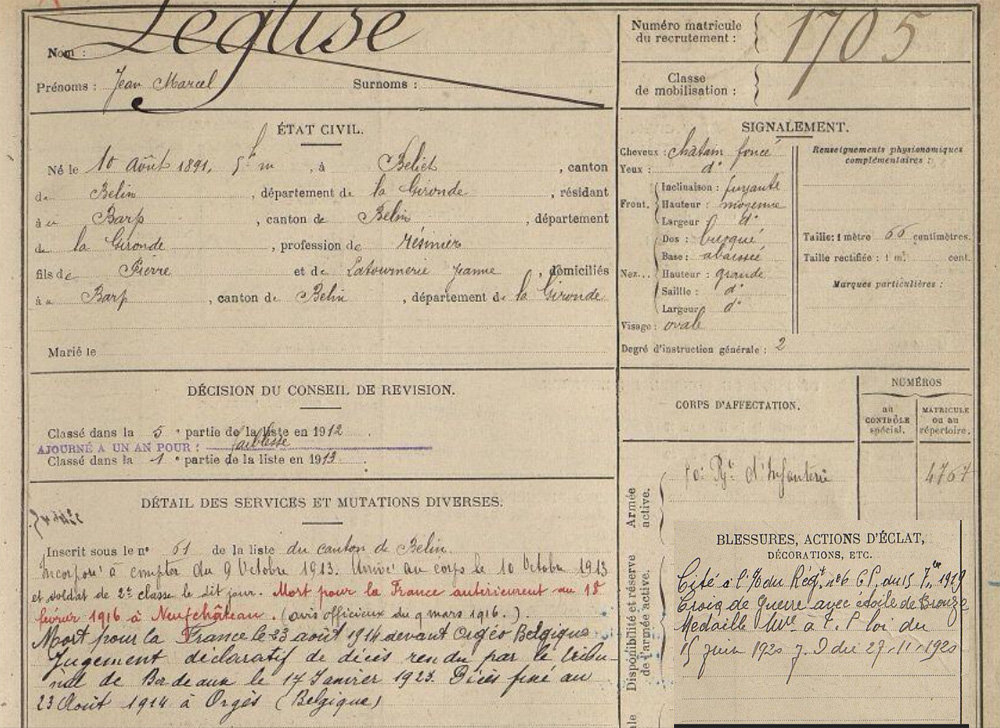 Nom : Léglise
Prénoms : Jean Marcel Surnoms :
Numéro matricule du recrutement : 1705
Classe de mobilisation :
ÉTAT CIVIL.
Né le 10 Août 1891, à Beliet, canton
de Belin, département de la Gironde, résidant
au Barp, canton de Belin, département
de la Gironde, profession de résinier
fils de Pierre et de Latournerie Jeanne, domiciliés
à au Barp, canton de Belin, département de la Gironde
Marié le
SIGNALEMENT.
Cheveux : chatain foncé
Yeux : d°
Front. Inclinaison : fuyante
Hauteur : moyenne
Largeur d°
Nez... Dos : busqué
Base : abaissée
Hauteur : grande
Saillie : d°
Largeur d°
Visage : ovale
Degré d'instruction générale : 2
Renseignements physionomiques complémentaires :
Taille : 1 mètre 66 centimètres.
Taille rectifiée : 1 m. cent.
Marques particulières :
DÉCISION DU CONSEIL DE REVISION.
Classé dans la 5e partie de la liste en 1912
AJOURNÉ A UN AN POUR : faiblesse
Classé dans la 1e partie de la liste en 1913
DÉTAIL DES SERVICES ET MUTATIONS DIVERSES.
Inscrit sous le n° 61 de la liste du canton de Belin.
Incorporé à compter du 9 Octobre 1913. Arrivé au corps le 10 Octobre 1913
et soldat de 2e classe le dit jour. Mort pour la France antérieurement au 18
février 1916 à Neufchâteau. (avis officieux du 9 mars 1916.)
Mort pour la France le 23 août 1914 devant Orgéo Belgique
Jugement déclaratif de décès rendu par le tribu-
nal de Bordeaux le 17 Janvier 1923. Décès fixé au
23 Août 1914 à Orgéo (Belgique)
CORPS D'AFFECTATION.
NUMÉROS
au CONTRÔLE spécial.
MATRICULE ou au répertoire.
Armée active.
Rgt d'Infanterie 4767
Disponibilité et réserve de l'armée active.
BLESSURES, ACTIONS D'ÉCLAT,
DÉCORATIONS, ETC.
Cité à l'O du Régt n°6 G.P. du 15 1919
Croix de Guerre avec étoile de Bronze
Médaille Mre à T. P loi du
15 juin 1920 J.O du 27.11.1920